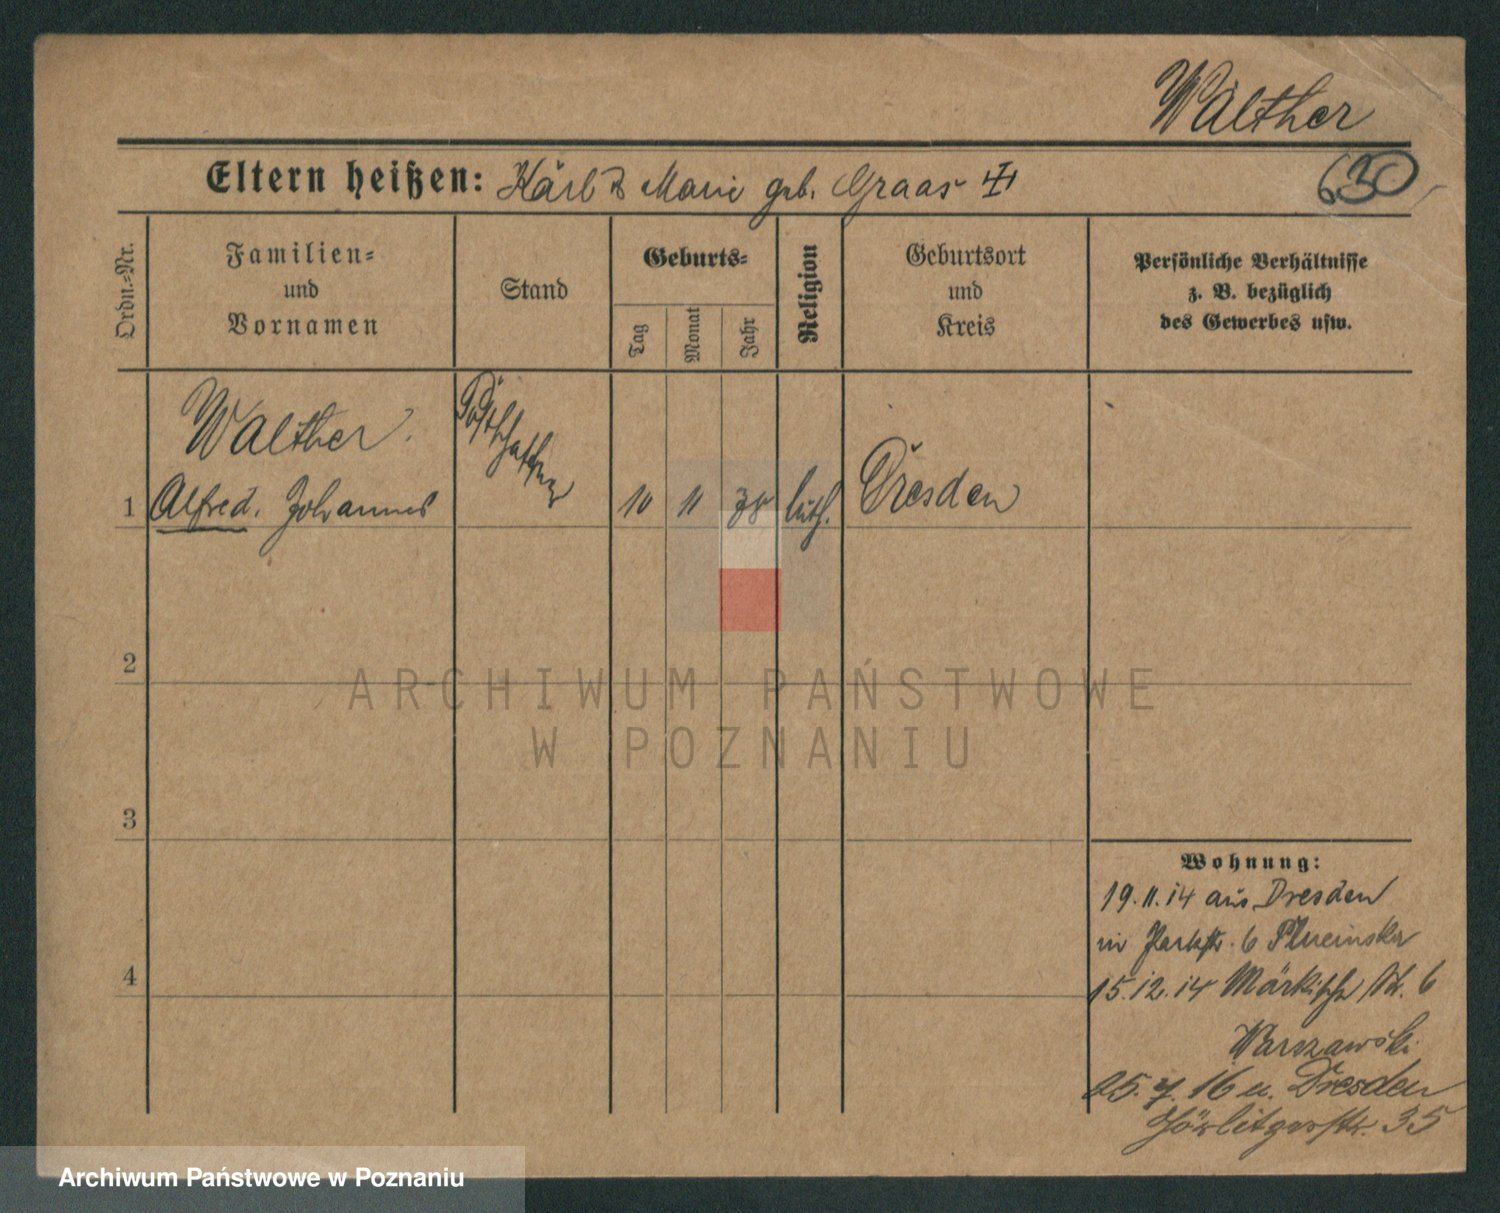 Walther
Eltern heißen: Karl & Marie geb. Graas
630
Ordn.=Nr.
Familien=
und
Vornamen
Stand
Geburts=
Tag
Monat
Jahr
Religion
Geburtsort
und
Kreis
Persönliche Verhältnisse
z. B. bezüglich
des Gewerbes usw.
Walther.
1 Alfred. Johannes
10 11 luth. Dresden
2
ARCHIWUM PAŃSTWOWE
W POZNANIU
3
Wohnung:
19.11.14 aus Dresden
in Parkstr. 6
4
15.12.14 Märkische Str. 6
Warszawski
25.7.16 n. Dresden
Görlitzerstr. 35
Archiwum Państwowe w Poznaniu